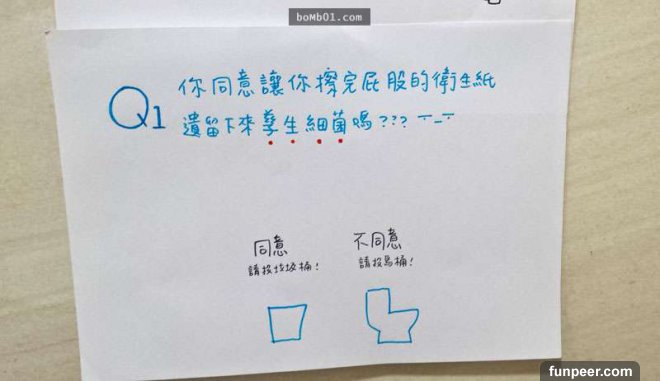 boMb01.com
Q1
你同意讓你擦完屁股的衛生紙
遺留下來孳生細菌嗎??? ㅡ_ㅡ
同意
請投垃圾桶!
不同意
請投馬桶!
funpeer.com